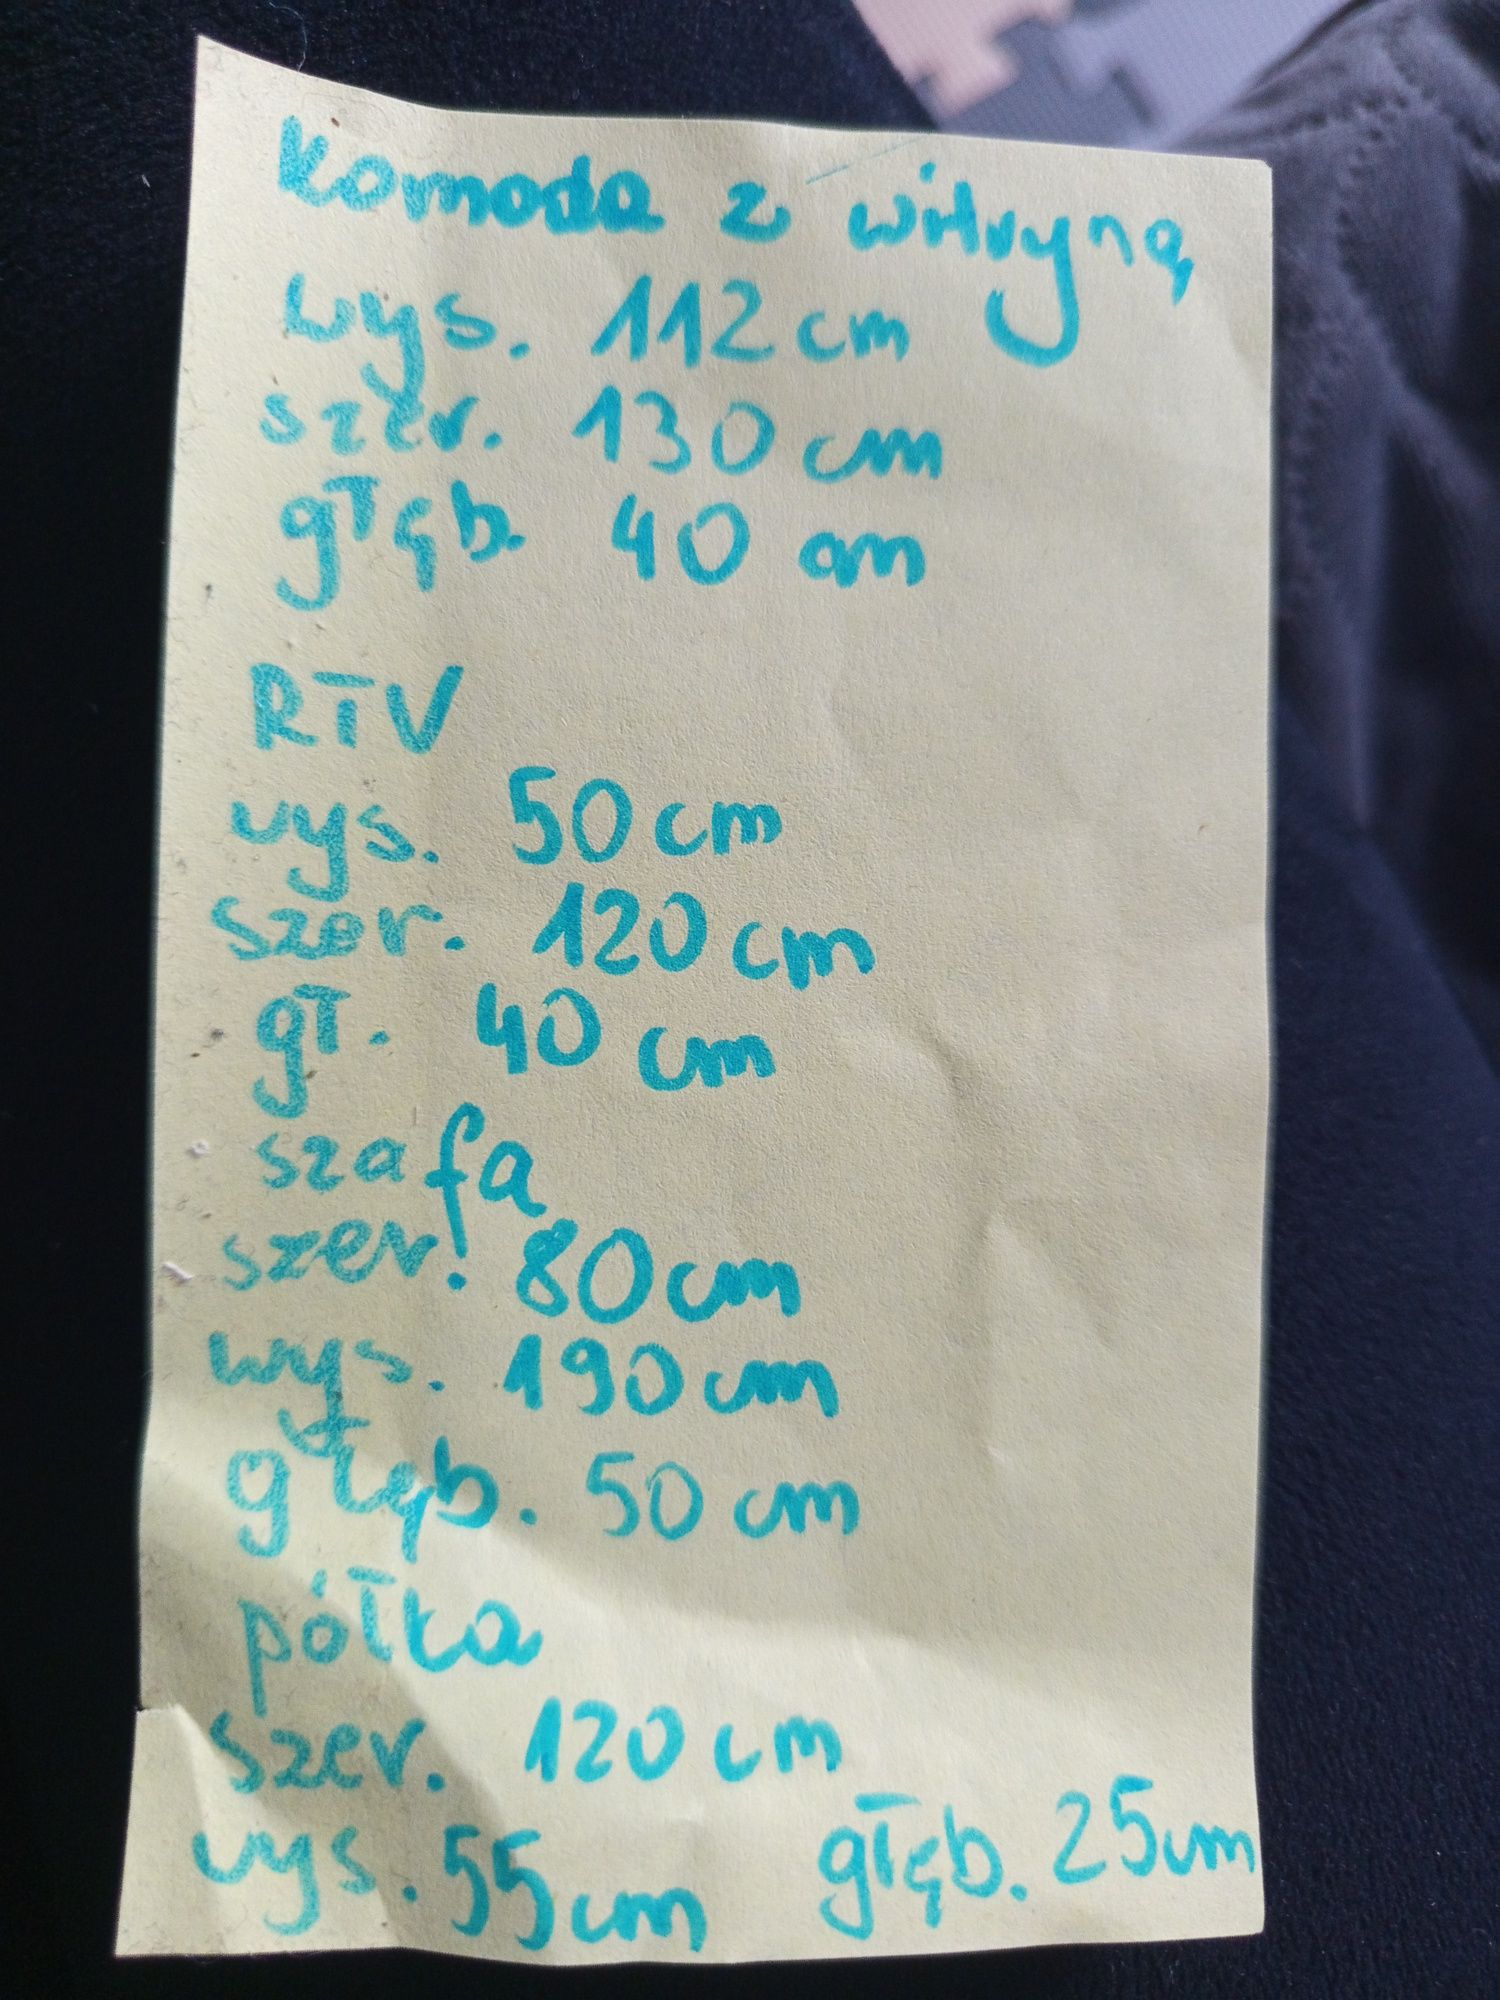 Komoda z witryną
wys. 112 cm
szer. 130 cm
głęb. 40 cm
RTV
wys. 50 cm
szer. 120 cm
gł. 40 cm
szafa
szer. 80 cm
wys. 190 cm
głęb. 50 cm
półka
szer. 120 cm
wys. 55 cm głęb. 25 cm